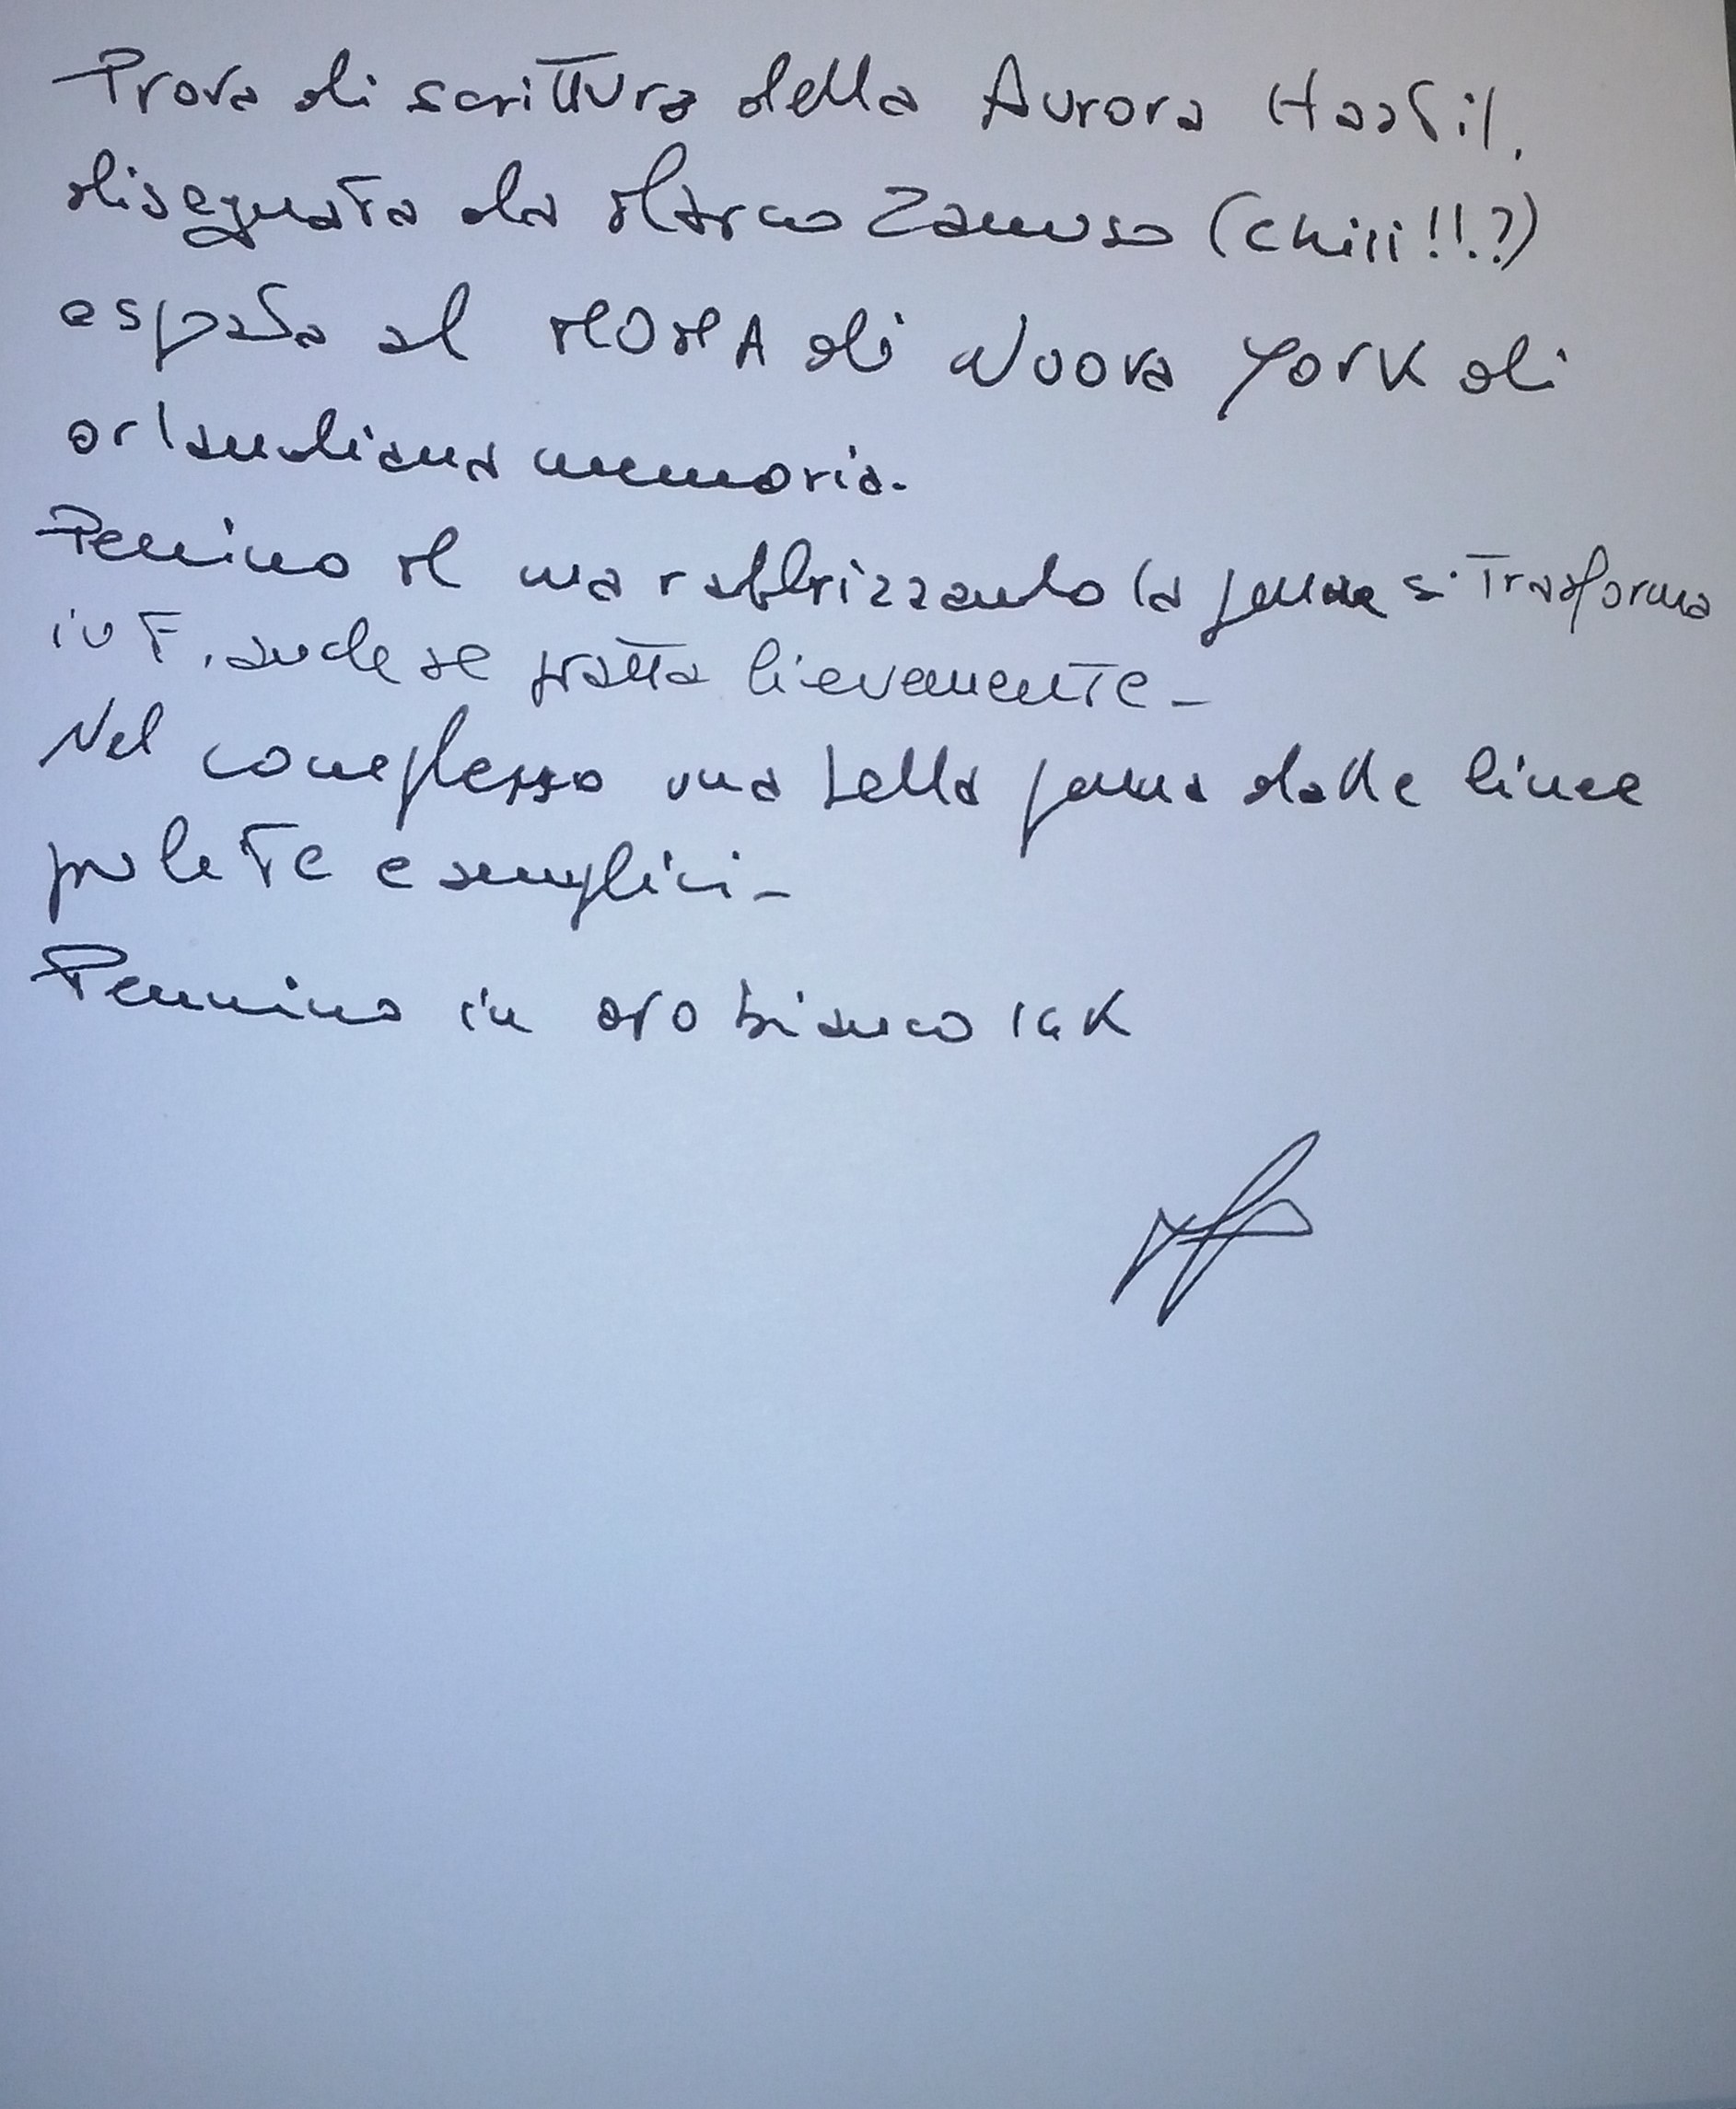 Prova di scrittura della Aurora Hastil,
disegnata da Marco Zanuso (chiii!!?)
esposta al MOMA di Nuova York di
orlandiana memoria.
Pennino M ma rabbrizzando la penna si trasforma
in F, anche se gratta lievemente -
Nel complesso una bella penna dalle linee
pulete e semplici -
Pennino in oro bianco 14K